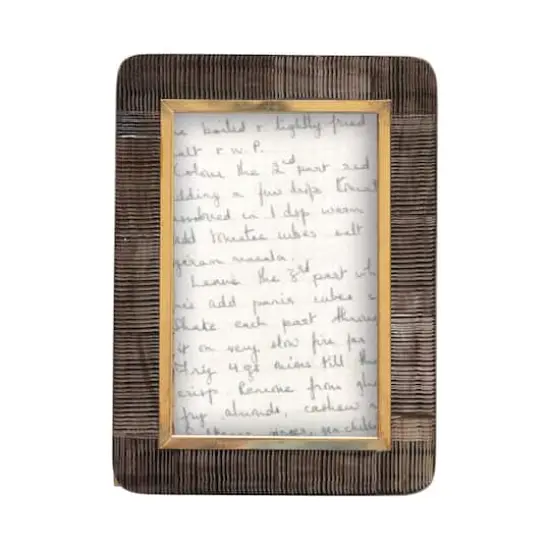 boiled & lightly fried
salt & W.P.
Colour the 2nd part red
adding a few drops
dissolved in 1 dsp warm
add tomatoe cubes salt
garam masala.
Leave the 3rd part
add panir cubes
Shake each part
it on very slow fire for
Fry 4 gs till
crisp. Remove from
fry almonds, cashew